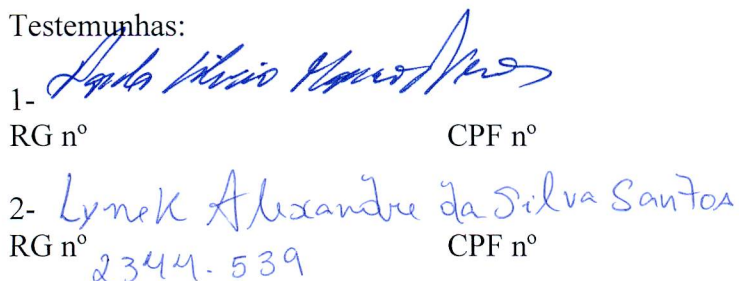 Testemunhas:
1-
RG nº CPF nº
2- Lynek Alexandre da Silva Santos
RG nº 2344.539 CPF nº